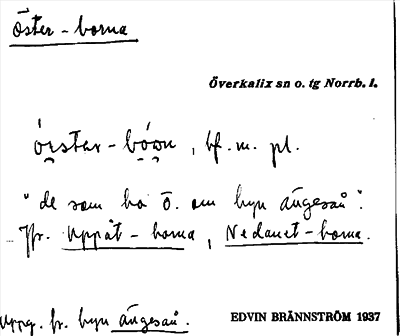 Öster-borna
Överkalix sn o. tg Norrb. l.
bf. m. pl.
"de som bo ö. om byn ängesån".
Jfr. Uppåt-borna, Nedanet-borna.
Uppg. fr. byn ängesån.
EDVIN BRÄNNSTRÖM 1937